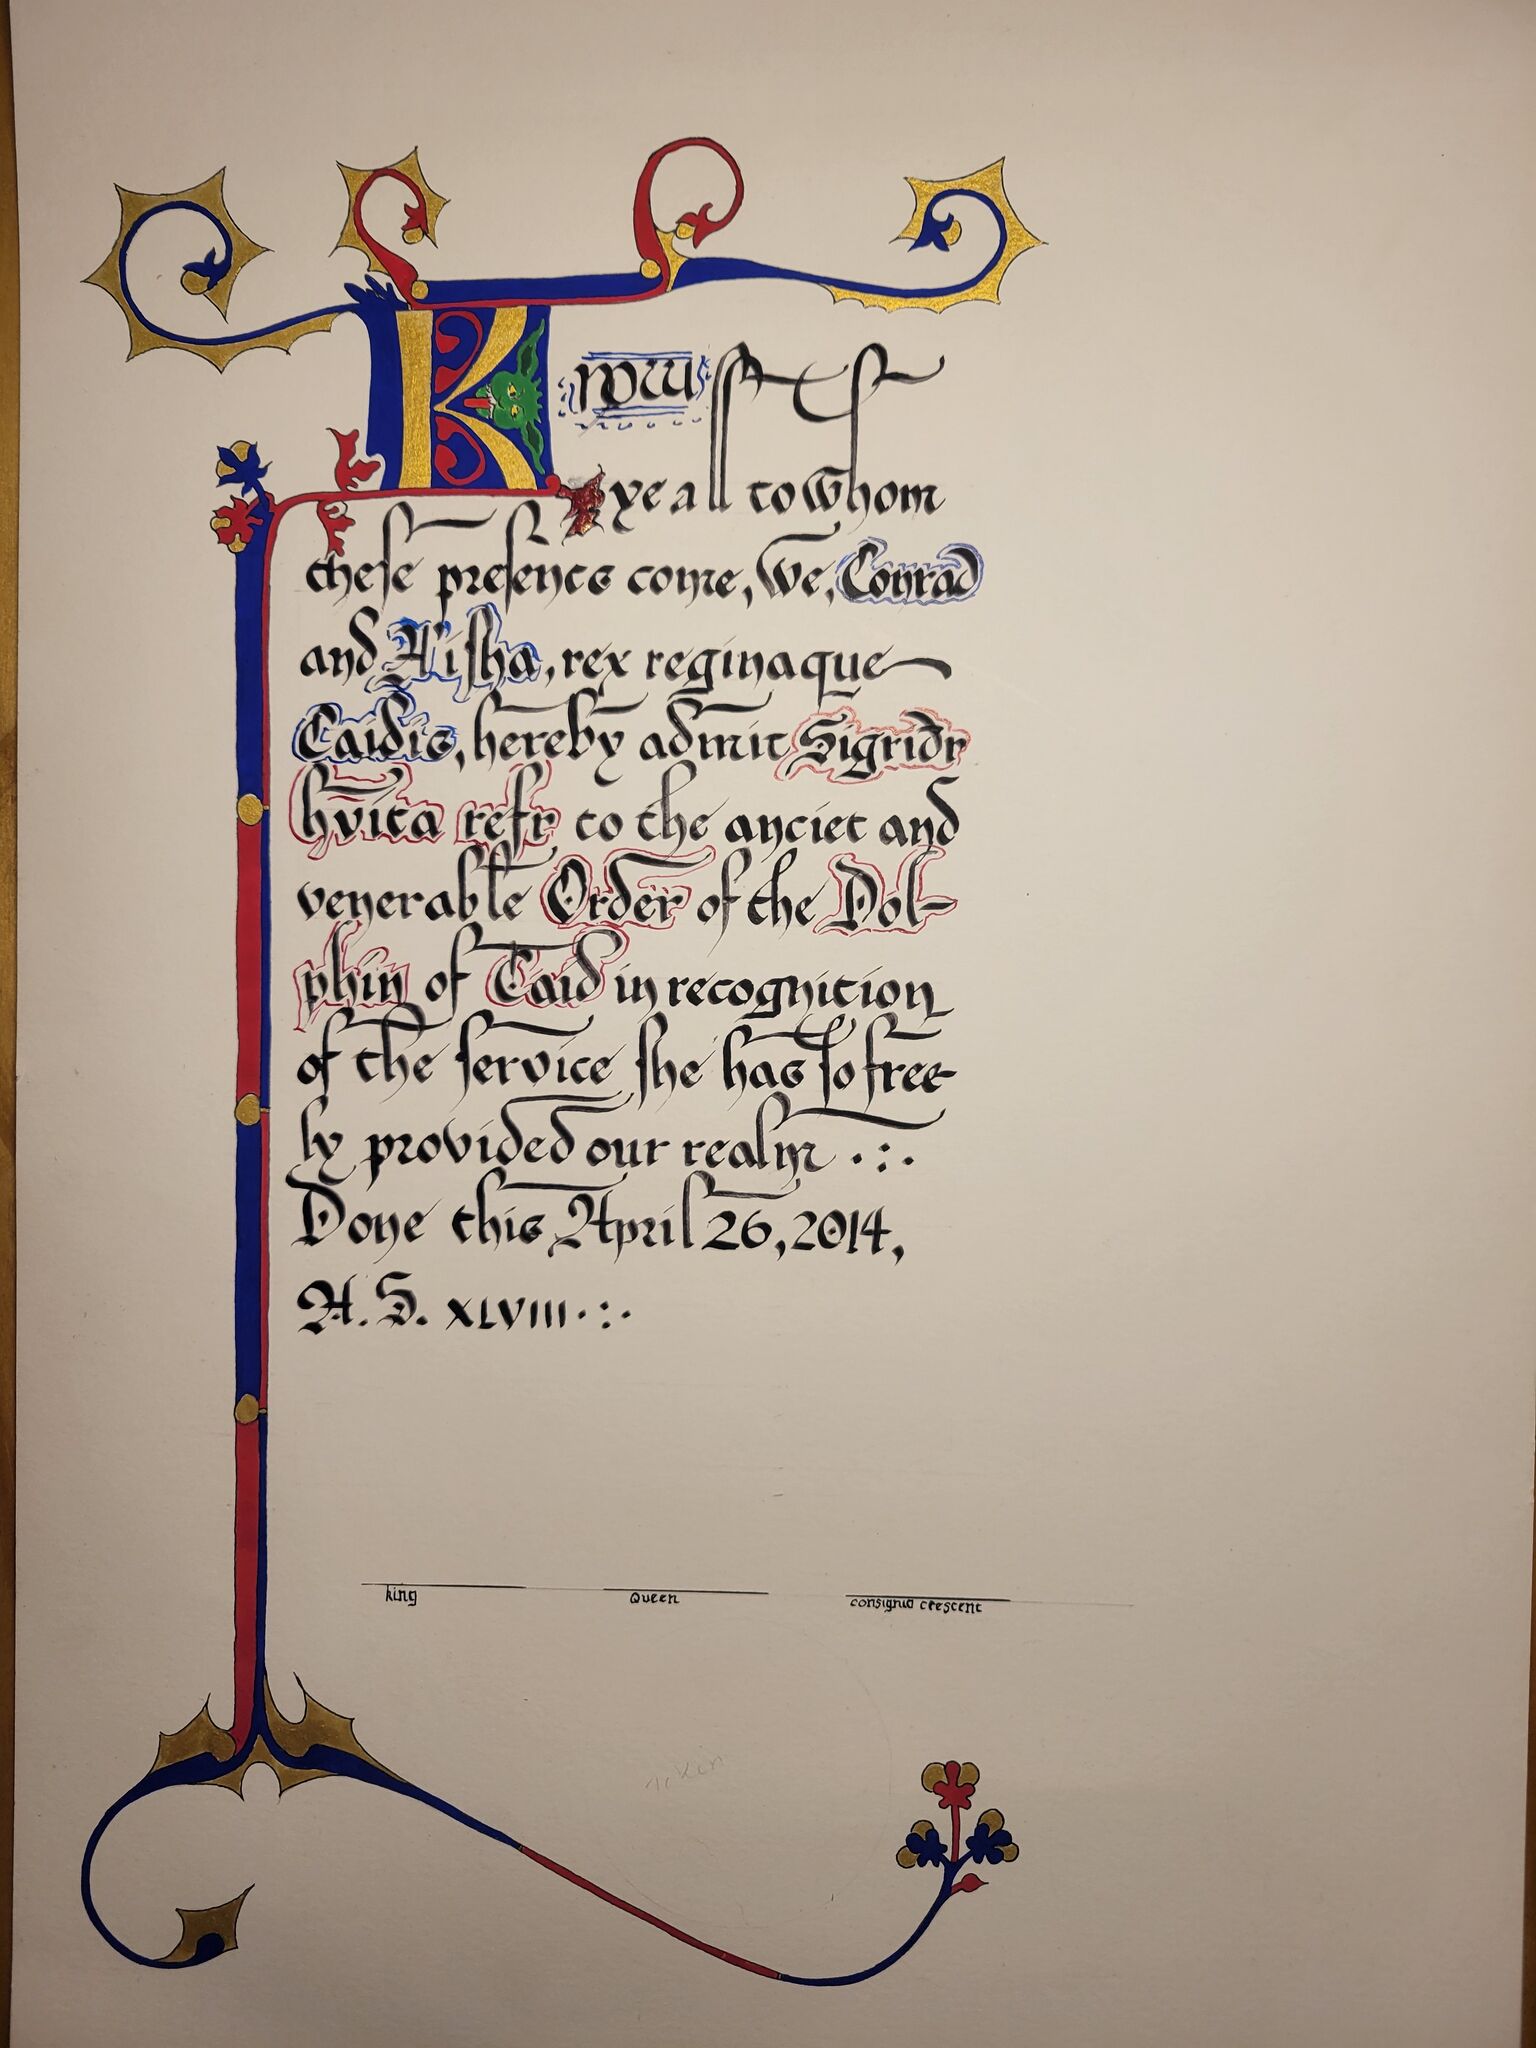 Know
ye all to whom
these presents come, We, Conrad
and A'isha, rex reginaque
Caidis, hereby admit Sigriðr
hvíta refr to the anciet and
venerable Order of the Dol-
phin of Caid in recognition
of the service she has so free-
ly provided our realm .:.
Done this April 26, 2014,
A. S. XLVIII .:.
king Queen consignid crescent